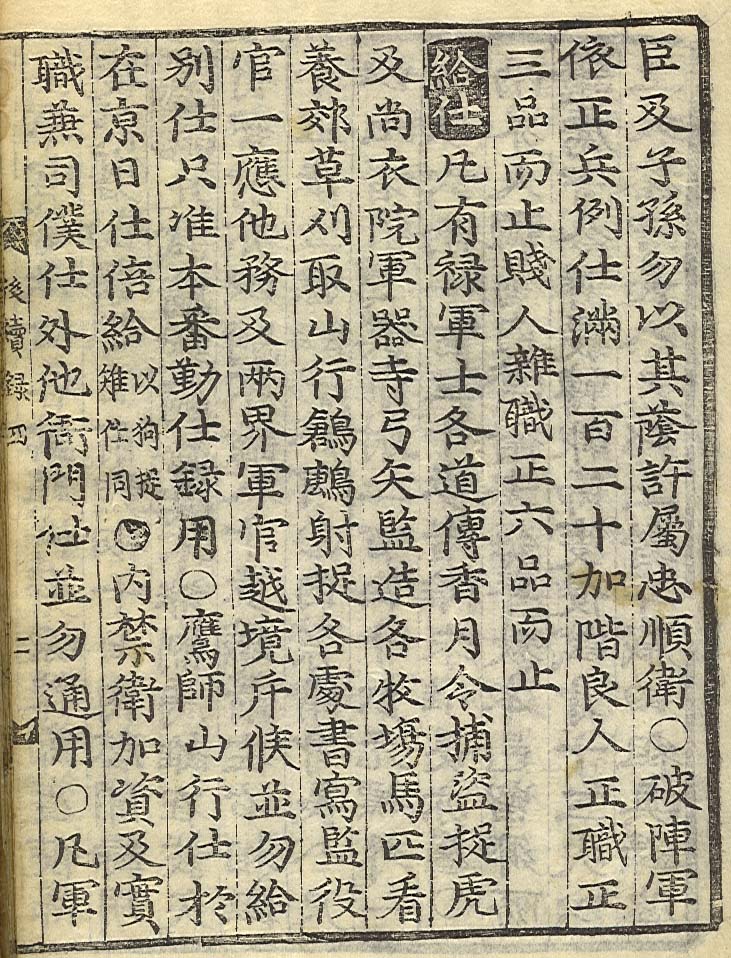 臣及子孫勿以其蔭許屬忠順衛○破陣軍
依正兵例仕滿一百二十加階良人正職正
三品而止賤人雜職正六品而止
給仕凡有禄軍士各道傳香月令捕盜捉虎
及尚衣院軍器寺弓矢監造各牧場馬匹看
養郊草刈取山行鷂鷓射捉各處書寫監役
官一應他務及兩界軍官越境斥候並勿給
別仕只准本番勤仕録用○鷹師山行仕於
在京日仕倍給以狗捉雉仕同○内禁衛加資及實
職兼司僕仕外他衙門仕並勿通用○凡軍
後續録 四 二